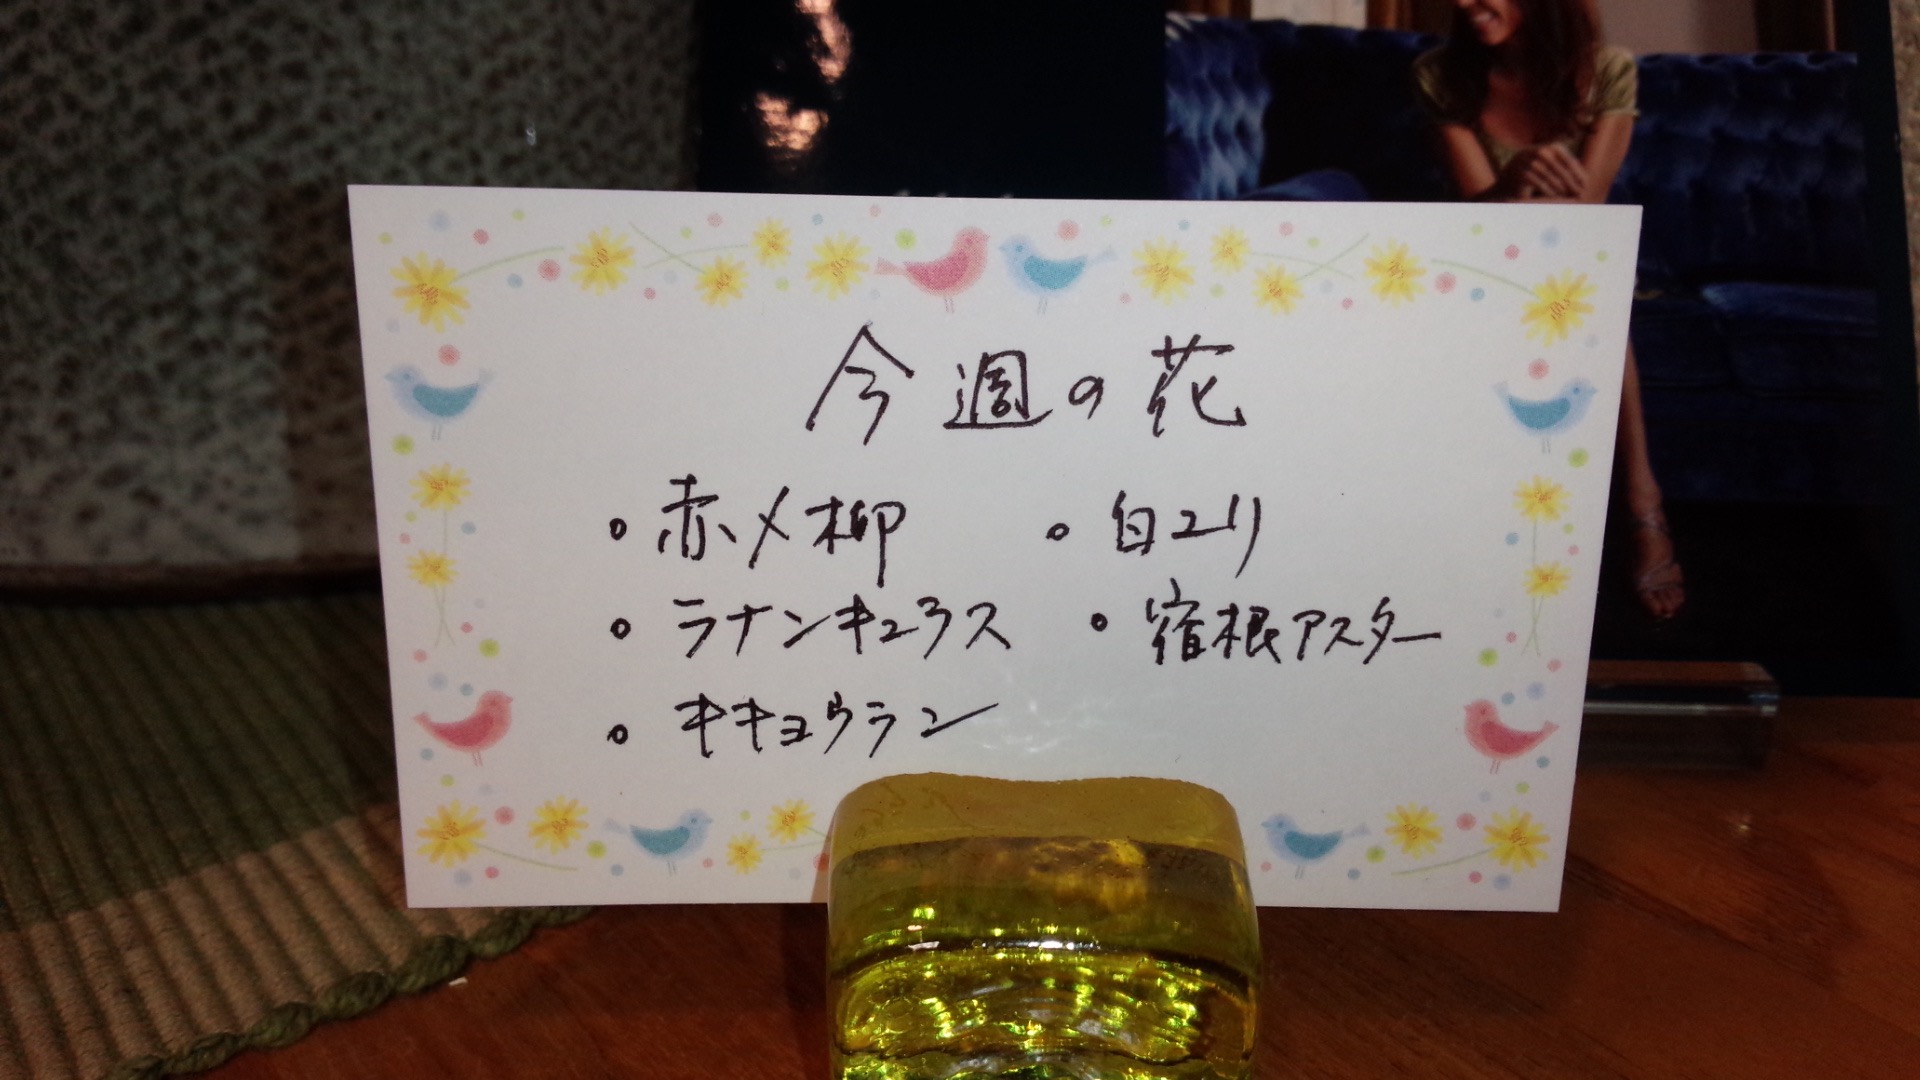 今週の花
○ 赤メ柳 ○ 白ユリ
○ ラナンキュラス ○ 宿根アスター
○ キキョウラン